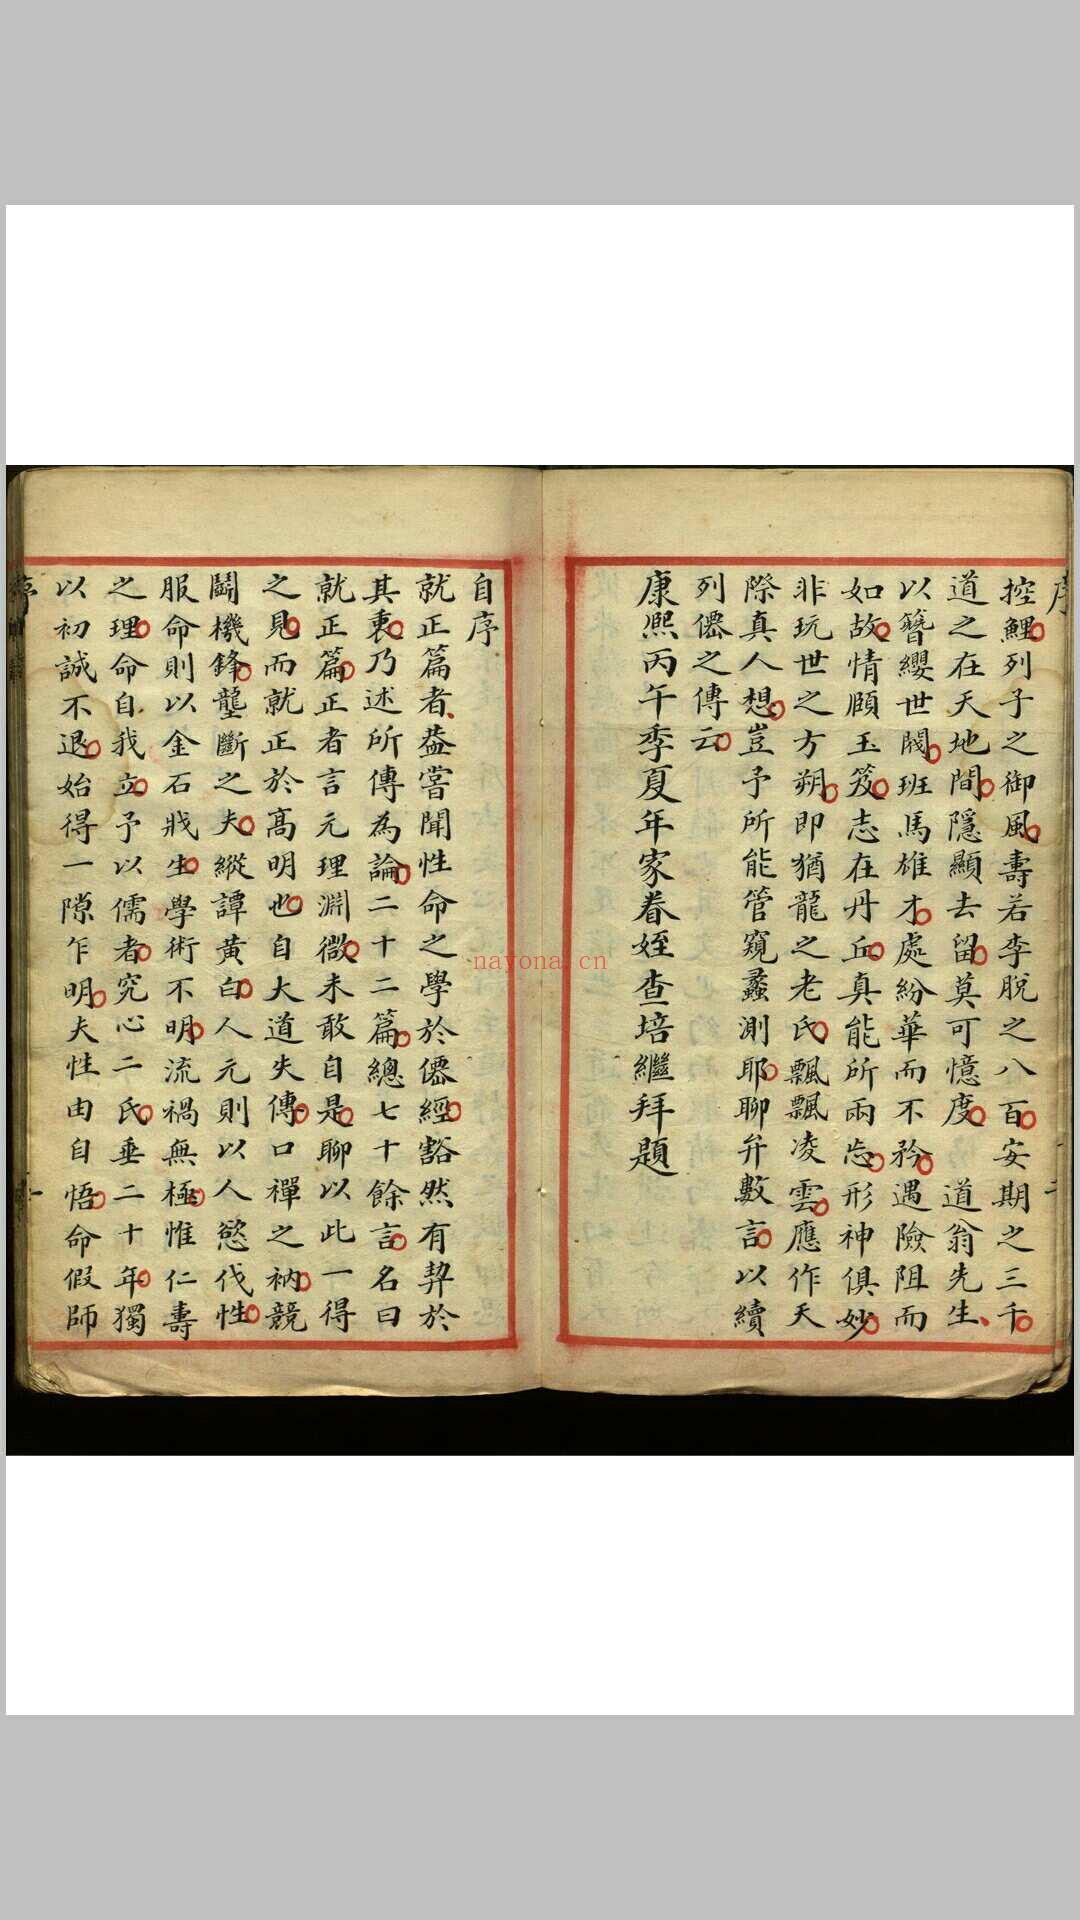 序
控鯉列子之御風壽若李脫之八百安期之三千
道之在天地間隱顯去留莫可憶度道翁先生
以簪纓世閥班馬雄才處紛華而不矜遇險阻而
如故情頤玉笈志在丹丘真能所兩忘形神俱妙
非玩世之方朔即猶龍之老氏飄飄凌雲應作天
際真人想豈予所能管窺蠡測耶聊弁數言以續
列僊之傳云
康熙丙午季夏年家眷姪查培繼拜題
自序
就正篇者葢嘗聞性命之學於僊經豁然有契於
其衷乃述所傳為論二十二篇總七十餘言名曰
就正篇正者言元理淵微未敢自是聊以此一得
之見而就正於高明也自大道失傳口禪之衲競
鬭機鋒壟斷之夫縱譚黄白人元則以人慾伐性
服命則以金石戕生學術不明流禍無極惟仁壽
之理命自我立予以儒者究心二氏垂二十年獨
以初誠不退始得一隙乍明夫性由自悟命假師
nayona.cn